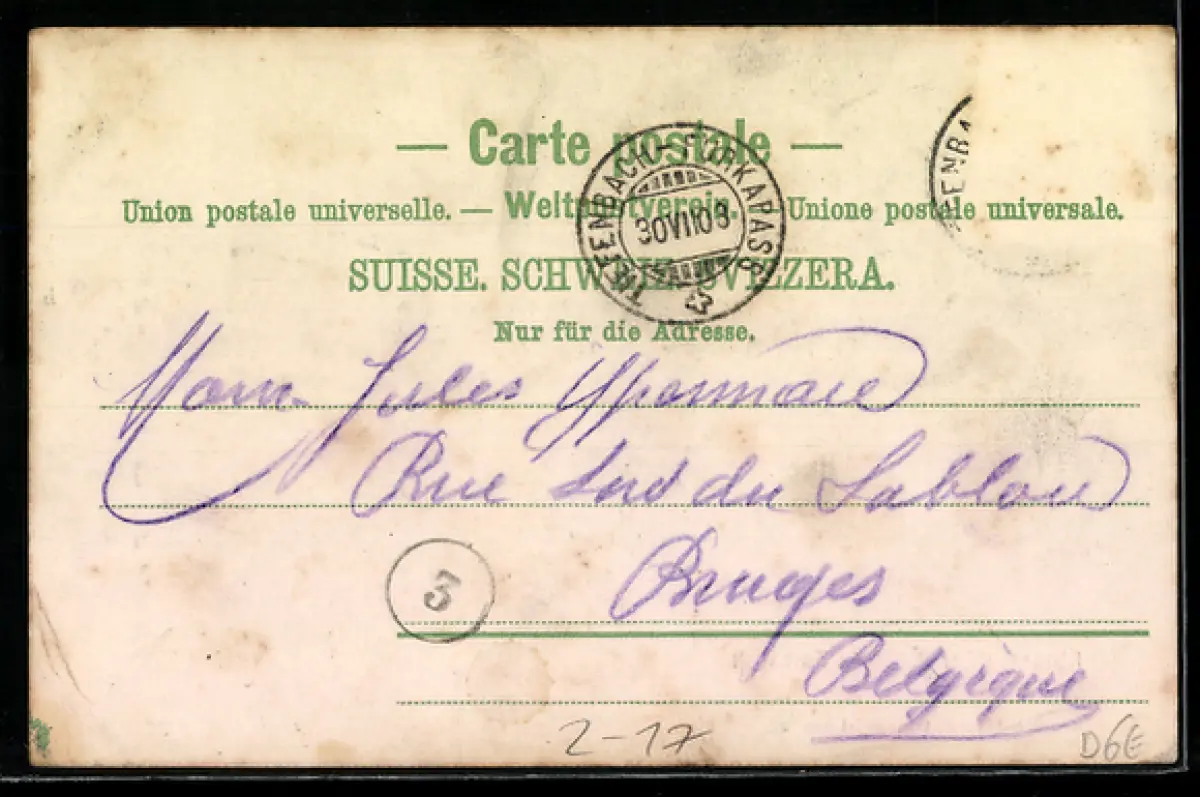 — Carte postale —
Union postale universelle. — Weltpostverein. — Unione postale universale.
SUISSE. SCHWEIZ. SVIZZERA.
Nur für die Adresse.
TIEFENBACH-FURKAPASS
30VII08
FENBA
Jules
Rue du Sablon
3
Bruges
Belgique
2-17
D6E